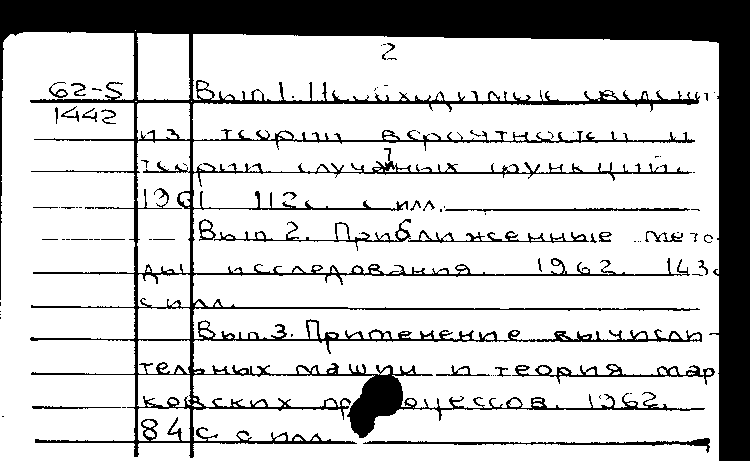 2
62-5 Вып.1. Необходимые сведени-
1442
из теории вероятностей и
теории случайных функций.
1961. 112с. с илл.
Вып 2. Приближенные мето-
ды исследования. 1962. 143с
с илл.
Вып.3. Применение вычисли-
тельных машин и теория мар
ковских процессов. 1962.
84 с. с илл.